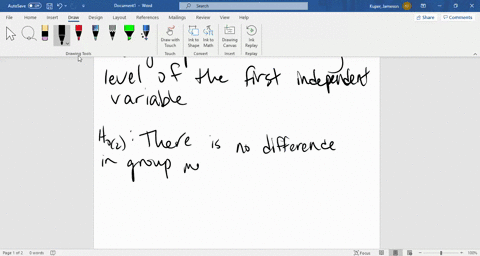 AutoSave Off
Document1 - Word
Search
Kuper, Jameson
File Home Insert Draw Design Layout References Mailings Review View Help
Share Comments
Draw with Touch
Ink to Shape
Ink to Math
Drawing Canvas
Ink Replay
Drawing Tools Touch Convert Insert Replay
level of the first independent
variable
H₀(2): There is no difference
in group
Page 1 of 2 0 words
Focus
100%